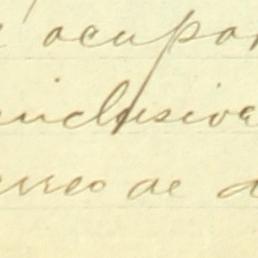 ocupar
inclusive
erreo de a